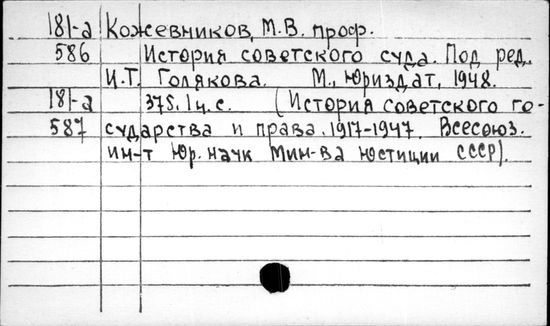 181-а Кожевников, М.В. проф.
586 История советского суда. Под ред.
И.Т. Голякова. М., Юриздат, 1948.
181-а 375, 1 н.с. (История советского го-
587 сударства и права. 1917-1947. Всесоюз.
ин-т юр. наук Мин-ва юстиции СССР).